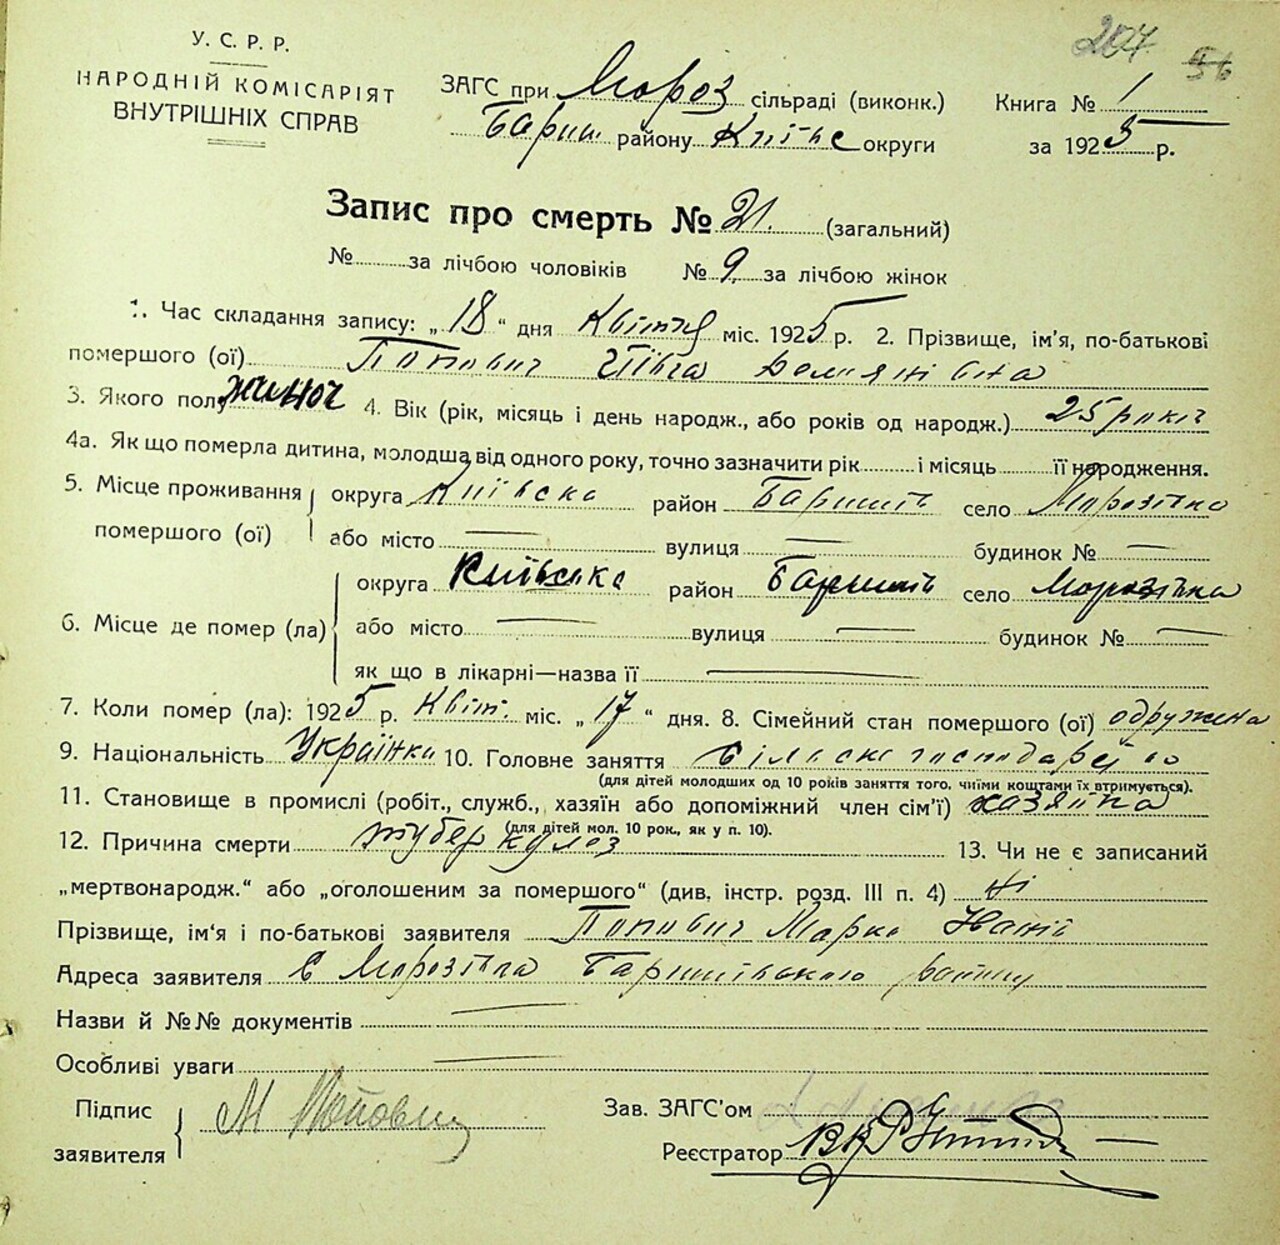 207 56
У. С. Р. Р.
НАРОДНІЙ КОМІСАРІЯТ
ВНУТРІШНІХ СПРАВ
ЗАГС при Мороз сільраді (виконк.)
Бариш. району Київс округи
Книга № 1
за 1925 р.
Запис про смерть № 21. (загальний)
№ за лічбою чоловіків № 9 за лічбою жінок
1. Час складання запису: „18“ дня Квітня міс. 1925 р. 2. Прізвище, ім'я, по-батькові
помершого (ої) Попович Півга Домянівна
3. Якого полу жиноч 4. Вік (рік, місяць і день народж., або років од народж.) 25 років
4а. Як що померла дитина, молодша від одного року, точно зазначити рік і місяць її народження.
5. Місце проживання помершого (ої) округа Київска район Баришів село Морозівка
або місто — вулиця — будинок № —
6. Місце де помер (ла) округа Київська район Баришів село Морозівка
або місто — вулиця — будинок № —
як що в лікарні—назва її —
7. Коли помер (ла): 1925 р. Квіт. міс. „17“ дня. 8. Сімейний стан помершого (ої) одружена
9. Національність Українка 10. Головне заняття сільске господарство
(для дітей молодших од 10 років заняття того, чиїми коштами їх втримується).
11. Становище в промислі (робіт., служб., хазяїн або допоміжний член сім'ї) хазяйка
(для дітей мол. 10 рок., як у п. 10).
12. Причина смерти туберкулоз 13. Чи не є записаний
„мертвонародж.“ або „оголошеним за помершого“ (див. інстр. розд. III п. 4) ні
Прізвище, ім'я і по-батькові заявителя Попович Марко
Адреса заявителя С Морозівка Баришівського району
Назви й №№ документів —
Особливі уваги —
Підпис заявителя М Попович
Зав. ЗАГС'ом
Реєстратор